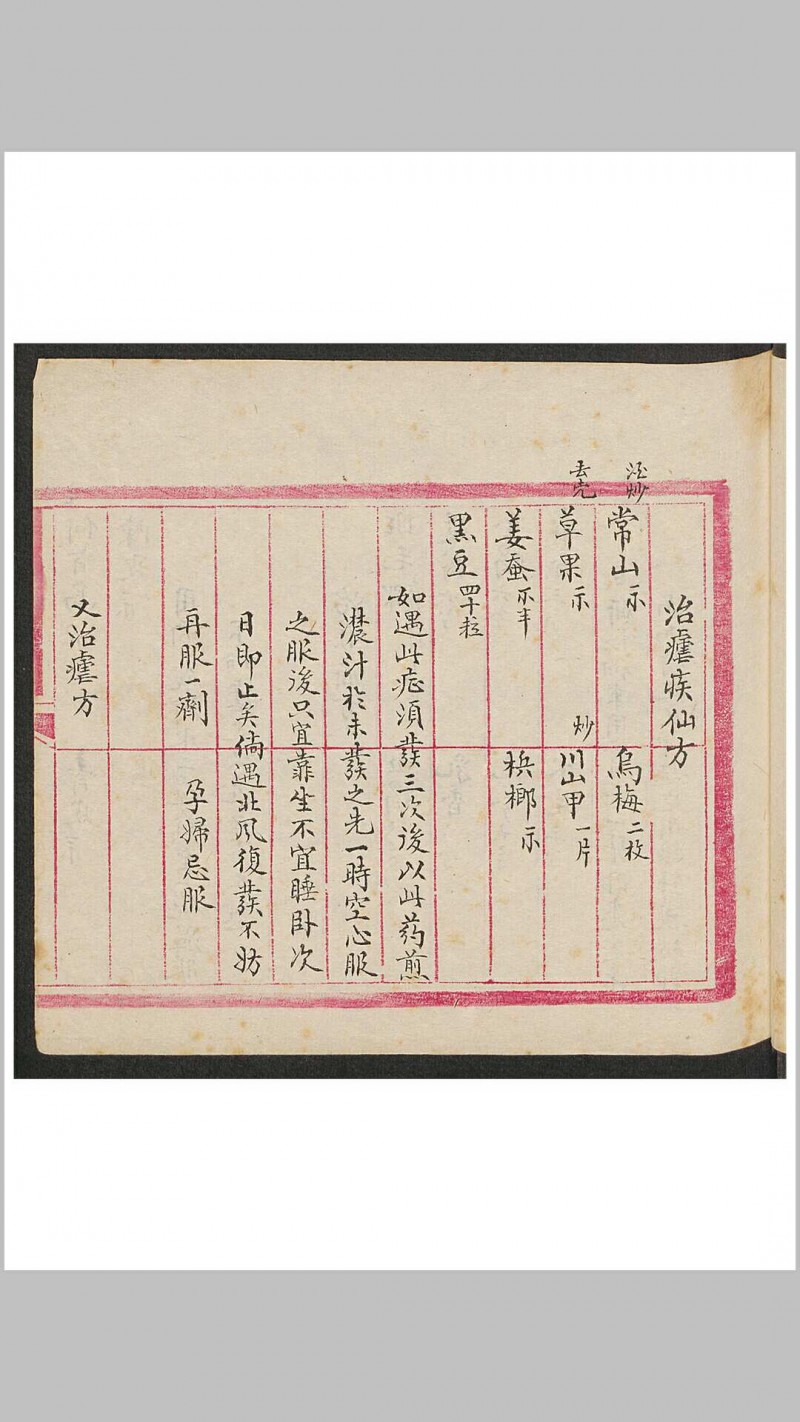 治瘧疾仙方
常山 炒
烏梅二枚
草果 去壳
川山甲一片 炒
姜蚕
梹榔
黑豆四十粒
如遇此症須發三次後以此药煎
濃汁於未發之先一時空心服
之服後只宜靠坐不宜睡卧次
日即止矣倘遇北风復發不妨
再服一劑 孕婦忌服
又治瘧方